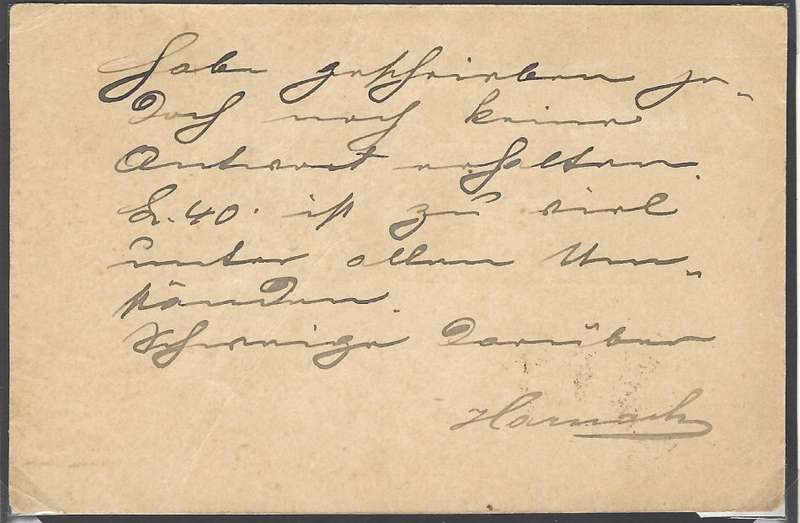 Habe geschrieben je-
doch noch keine
Antwort erhalten.
L. 40. ist zu viel
unter allen Um-
ständen.
Schweige darüber
Harnack